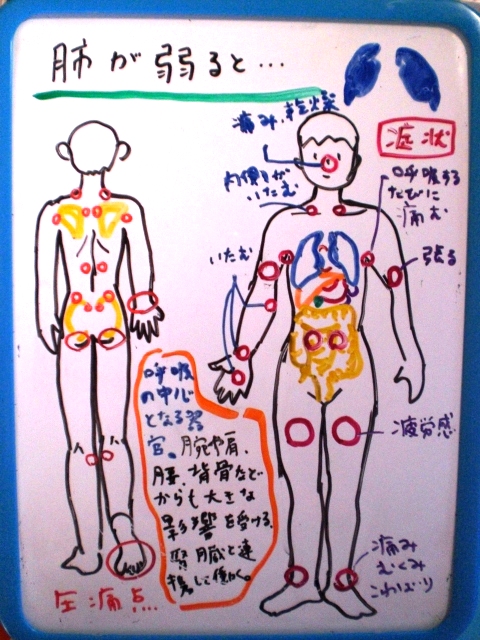 肺が弱ると…
痛み、乾燥
症状
内側が
いたむ
呼吸する
たびに
痛む
いたむ
張る
呼吸
の中心
となる器
官。腕や肩、
腰、背骨など
からも大きな
影響を受ける。
腎臓と連
携して働く。
疲労感
痛み
むくみ
こわばり
圧痛点